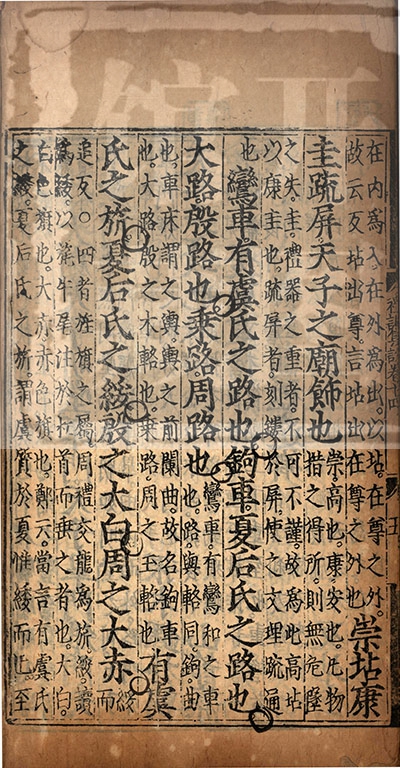 在内爲入。在外爲出。以坫在尊之外。
故云反坫出尊。言坫出在尊之外也
崇坫康
圭疏屏天子之廟飾也
崇。高也。康。安也。凡物
措之得所。則無危墜
之失。圭。禮器之重者。不可不謹。故爲此高坫
以康圭也。疏屏者。刻鏤於屏。使之文理疏通
也
鸞車有虞氏之路也鉤車夏后氏之路也
大路殷路也乘路周路也
鸞車。有鸞和之車
也。路與輅同。鉤曲
也。車床謂之輿。輿之前闌曲。故名鉤車
也。大路。殷之木輅也。乘路。周之玉輅也
有虞
氏之旂夏后氏之綏殷之大白周之大赤
綏
而
追反〇四者旌旗之屬。周禮交龍爲旂。綏。讀
爲緌。以旄牛尾注於杠首而垂之者也。大白。
白色旗也。大赤。赤色旗也。鄭云。當言有虞氏
之緌。夏后氏之旂。謂虞質於夏惟綏而已。至